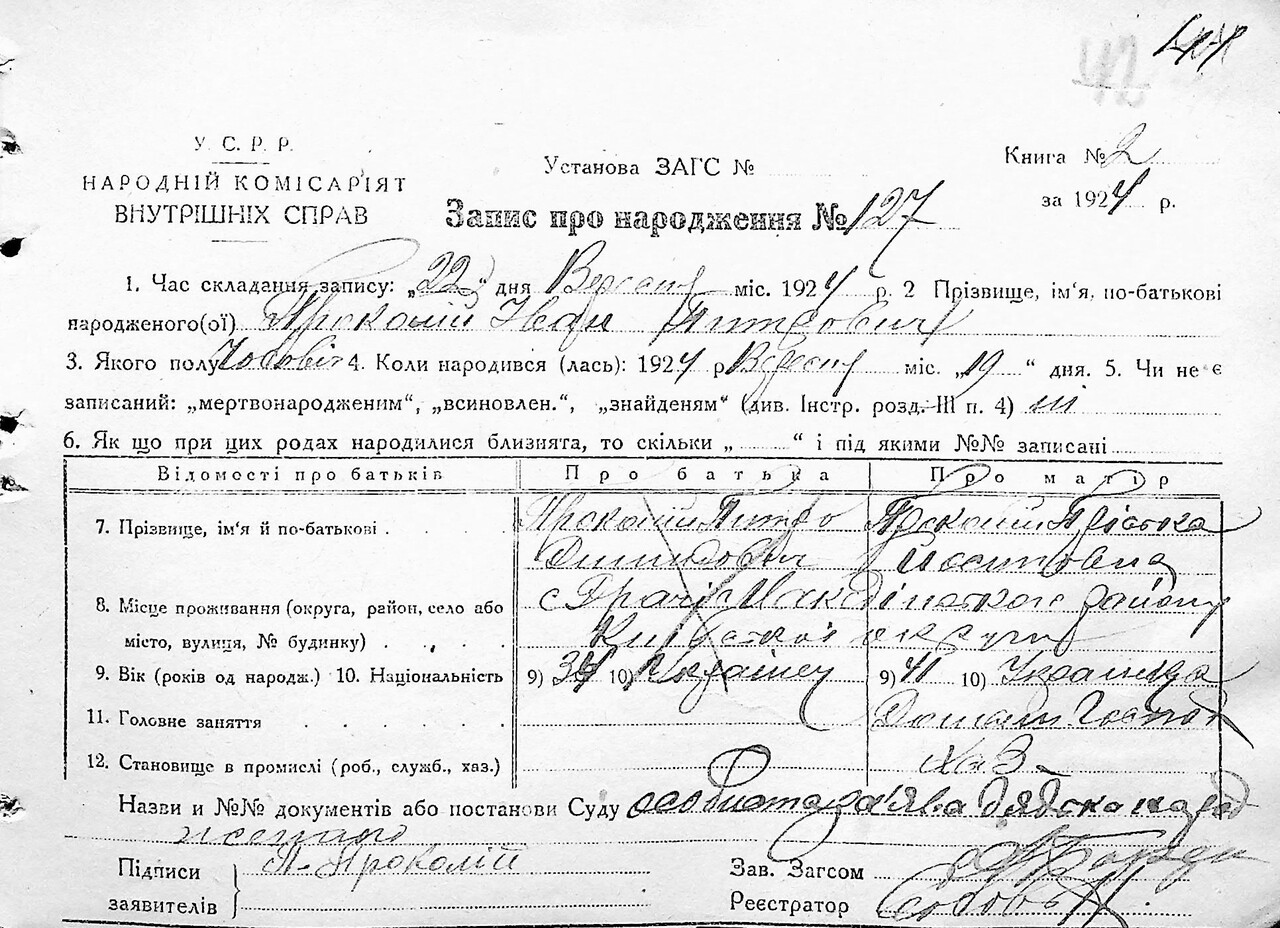 44
42
У. С. Р. Р.
НАРОДНІЙ КОМІСАРІЯТ
ВНУТРІШНІХ СПРАВ
Установа ЗАГС №
Книга № 2
за 1924 р.
Запис про народження № 127
1. Час складання запису: „22“ дня Вересня міс. 1924 р. 2 Прізвище, ім'я, по-батькові
народженого(ої) Прокопій Іван Питрович
3. Якого полу 4. Коли народився (лась): 1924 р. Вересня міс. „19“ дня. 5. Чи не є
записаний: „мертвонародженим“, „всиновлен.“, „знайденям“ (див. Інстр. розд. III п. 4) ні
6. Як що при цих родах народилися близнята, то скільки „ “ і під якими №№ записані
Відомості про батьків Про батька Про матір
7. Прізвище, ім'я й по-батькові Прокопій Питро Прокопій
Йосиповна
8. Місце проживання (округа, район, село або с району
місто, вулиця, № будинку) округи
9. Вік (років од народж.) 10. Національність 9) 10) Українец 9) 41 10) Українка
11. Головне заняття Домашн.
12. Становище в промислі (роб., служб., хаз.) хаз.
Назви и №№ документів або постанови Суду особиста заява дядька
Підписи Прокопій
заявителів
Зав. Загсом
Реєстратор